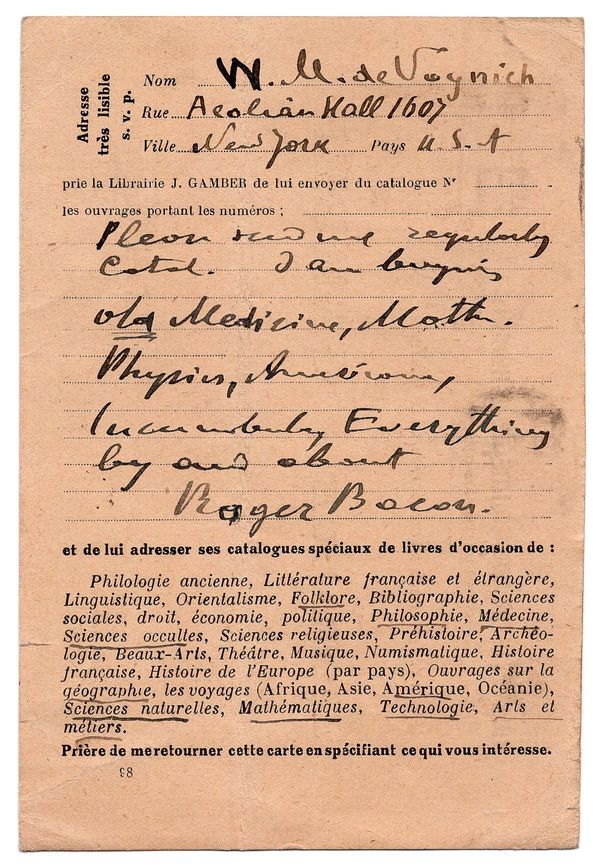 Adresse
très lisible
s. v. p.
Nom W. M. de Voynich
Rue Aeolian Hall 1607
Ville New York Pays U. S. A
prie la Librairie J. GAMBER de lui envoyer du catalogue N°
les ouvrages portant les numéros ;
Please send me regularly
Catal. I am buying
old Medicine, Math.
Physics, Americana,
Incunabula, Everything
by and about
Roger Bacon.
et de lui adresser ses catalogues spéciaux de livres d'occasion de :
Philologie ancienne, Littérature française et étrangère,
Linguistique, Orientalisme, Folklore, Bibliographie, Sciences
sociales, droit, économie, politique, Philosophie, Médecine,
Sciences occultes, Sciences religieuses, Préhistoire, Archéo-
logie, Beaux-Arts, Théâtre, Musique, Numismatique, Histoire
française, Histoire de l'Europe (par pays), Ouvrages sur la
géographie, les voyages (Afrique, Asie, Amérique, Océanie),
Sciences naturelles, Mathématiques, Technologie, Arts et
métiers.
Prière de me retourner cette carte en spécifiant ce qui vous intéresse.
98